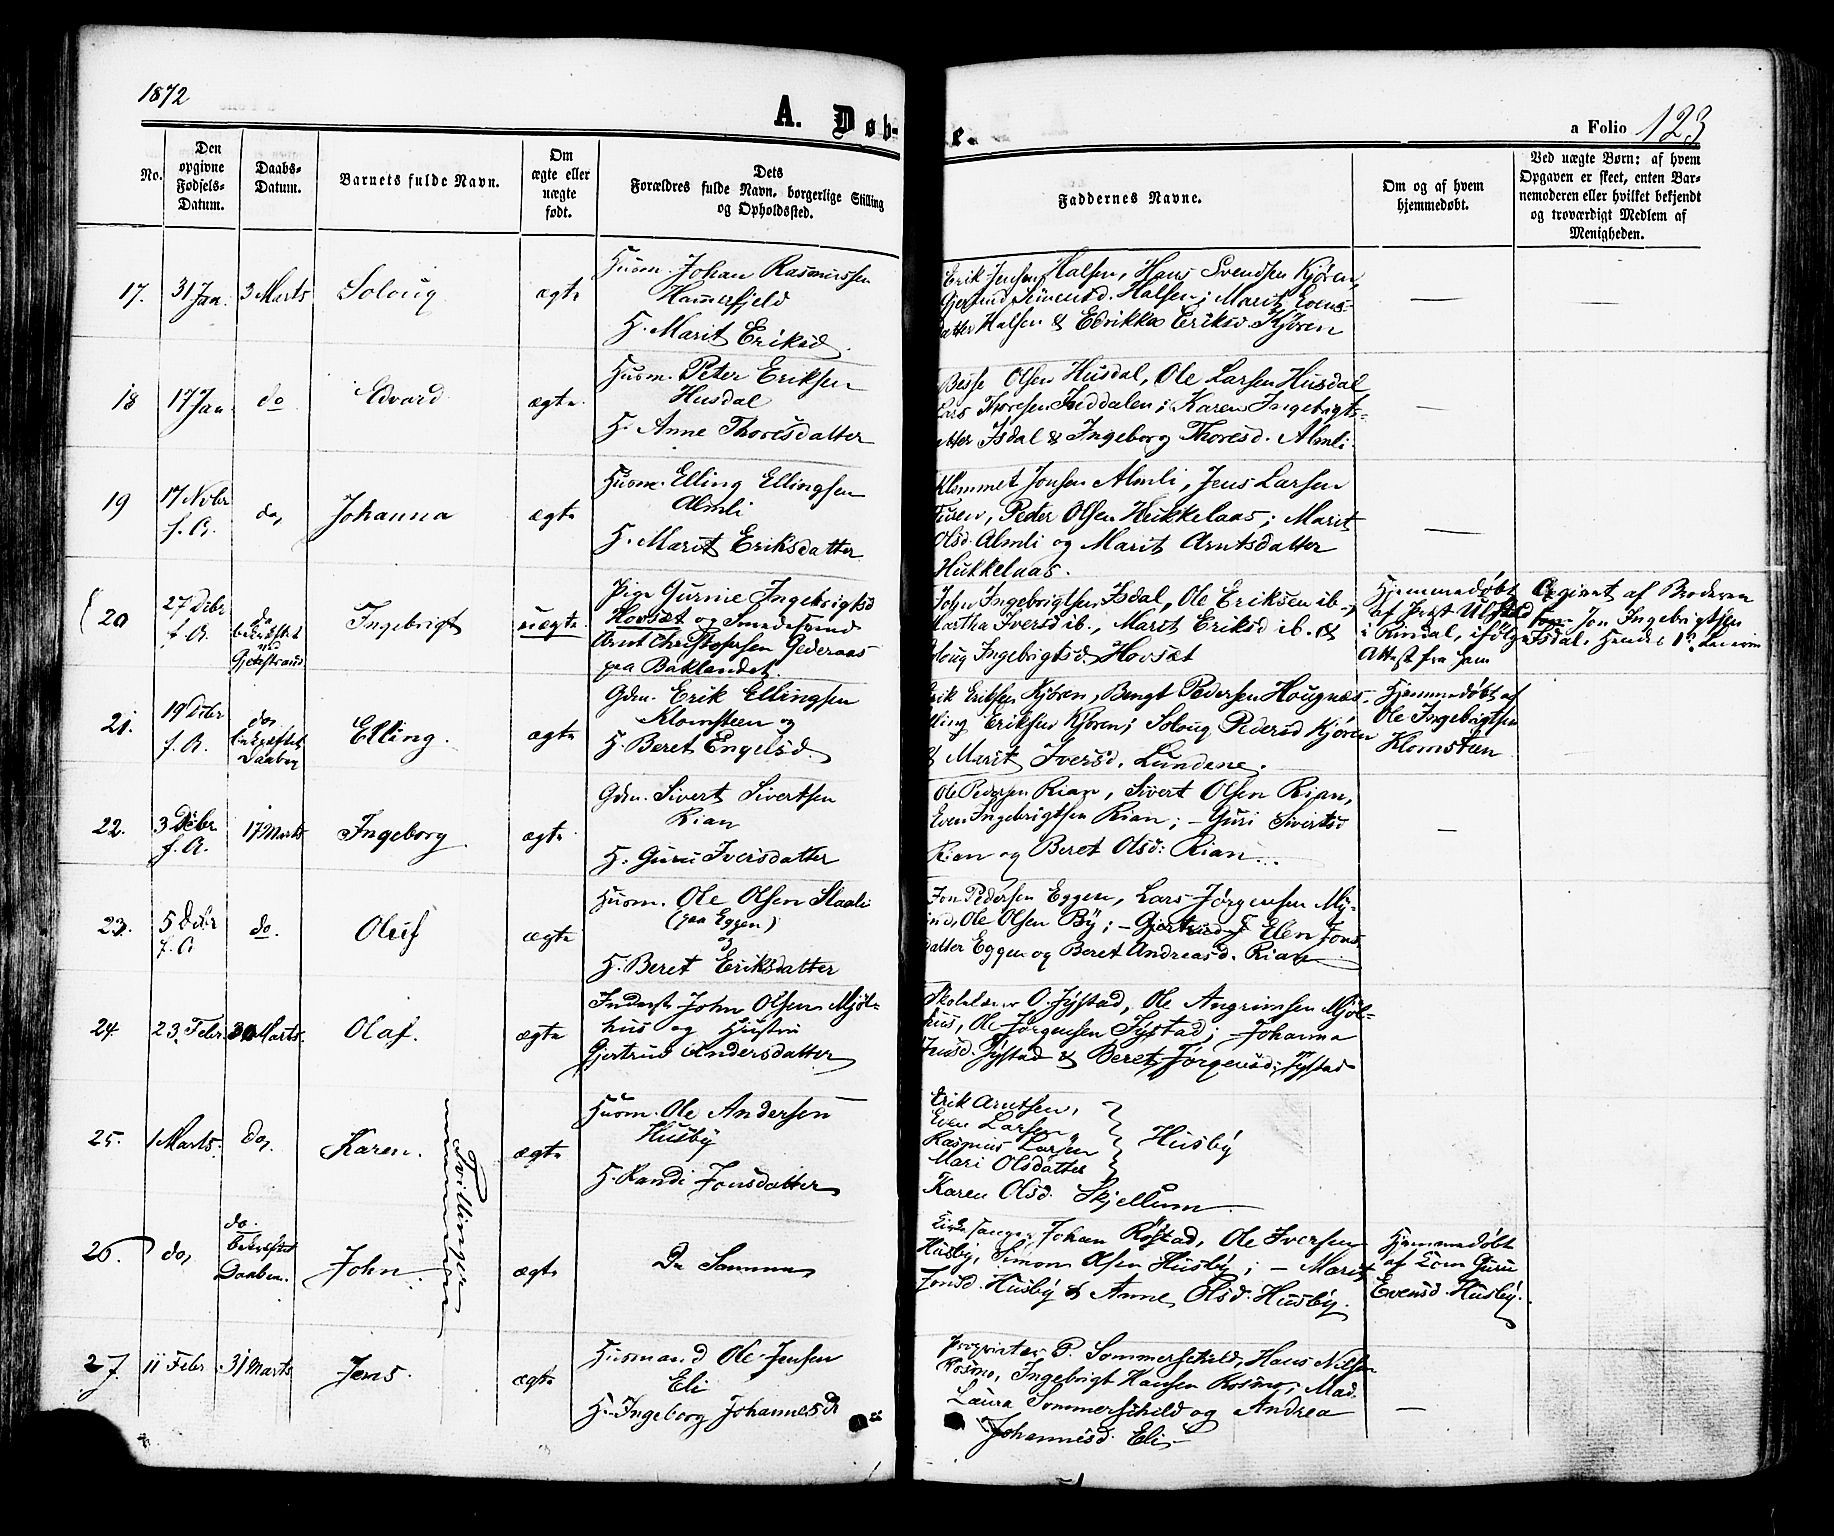 1872
A. Døb-
e.
a Folio 123
No.
Den
opgivne
Fødsels-
Datum.
Daabs-
Datum.
Barnets fulde Navn.
Om
ægte eller
uægte
født.
Dets
Forældres fulde Navn, borgerlige Stilling
og Opholdssted.
Faddernes Navne.
Om og af hvem
hjemmedøbt.
Ved uægte Børn: af hvem
Opgaven er skeet, enten Bar-
nemoderen eller hvilket bekjendt
og troværdigt Medlem af
Menigheden.
17. 31 Jan. 3 Marts Soloug ægte
Huusm. Johan Rasmussen
Hamerfjeld
H. Marit Eriksd.
Erik Jensen Halsen, Hans Svendsen Kjøren,
Gjertrud Simensd. Halsen; Marit Evens-
datter Halsen & Edrikka Eriksd. Kjøren
—
—
18 17 Jan do Edvard ægte
Husm. Peter Eriksen
Husdal
H. Anne Thoresdatter
Besse Olsen Husdal, Ole Larsen Husdal
Lars Thoresen Inddalen; Karen Ingebrigts-
atter Isdal & Ingeborg Thoresd. Almli.
—
19 17 Novbr f. A. do, Johanna ægte
Husm. Elling Ellingsen
Almli
H. Marit Eriksdatter
Klemmet Jonsen Almli, Jens Larsen
Furen, Peder Olsen Hukkelaas; Marit
Olsd. Almli og Marit Arntsdatter
Hukkelaas.
—
20 27 Debr f. A. do bekræftet Ingebrigt uægte
Pige Gurine Ingebrigtsd
Hovsæt og Smedesvend
Arnt Christophersen Gederaas
paa Baklandet.
John Ingebrigtsen Isdal, Ole Eriksen ib.,
Martha Iversd ib., Marit Eriksd ib. &
Soloug Ingebrigtsd. Hovsæt
Hjemmedøbt
i Rindal, ifølge
Attest fra ham
Opgivet af Broderen
Jon Ingebrigtsen
Isdal.
21. 19 Debr f. A. do, bekræftet Daaben Elling. ægte
Gdm. Erik Ellingsen
Klomsteen og
H. Beret Engelsd.
Erik Eriksen Kjøren, Bengt Pedersen Hougnæs-
Elling Eriksen Kjøren; Soloug Pedersd Kjøren
& Marit Iversd. Lundene.
Hjemmedøbt af
Ole Ingebrigtsen
Klomsteen
22. 3 Debr f. A. 17 Marts Ingeborg ægte
Gdm. Sivert Sivertsen
Rian
H. Guru Iversdatter
Ole Pedersen Rian, Sivert Olsen Rian,
Even Ingebrigtsen Rian; – Guri Sivertsd
Rian og Beret Olsd: Rian
—
23. 5 Debr f. A do. Oluf ægte
Husm. Ole Olsen Slaali
(paa Eggen)
og
H. Beret Eriksdatter
Jon Pedersen Eggen, Lars Jørgensen My-
Ole Olsen By; – Elen Jons-
datter Eggen og Beret Andreasd. Rian
24. 23 Febr 30 Marts. Olaf. ægte
Inderst John Olsen Mjøl-
hus og Hustru
Gjertrud Andersdatter
Skolelærer O. Fystad, Ole Angrimsen Mjøl-
hus, Ole Jørgensen Fystad; Johanna
Jensd. Fystad & Beret Jørgensd: Fystad
25. 1 Marts. do, Karen. ægte
Tvillinger
Husm. Ole Andersen
Husby
H. Randi Jonsdatter
Erik Arntsen,
Even Larsen
Rasmus Larsen
Mari Olsdatter
Husby
Karen Olsd. Skjellum
26. do, do. Bekræftet Daaben. John. ægte
De Samme
Johan Røstad, Ole Iversen
Husby, Simon Olsen Husby; – Marit
Jonsd. Husby & Anne Olsd. Husby.
Hjemmedøbt
af Guru
Evensd. Husby.
27. 11 Febr 31 Marts Jens. ægte
Husmand Ole Jensen
Eli
H. Ingeborg Johannesd
Proprietær P. Sommerschild, Hans Nilsen
Rosmo, Ingebrigt Hansen Rosmo; Mad.
Laura Sommerschild og Andrea
Johannesd. Eli
—